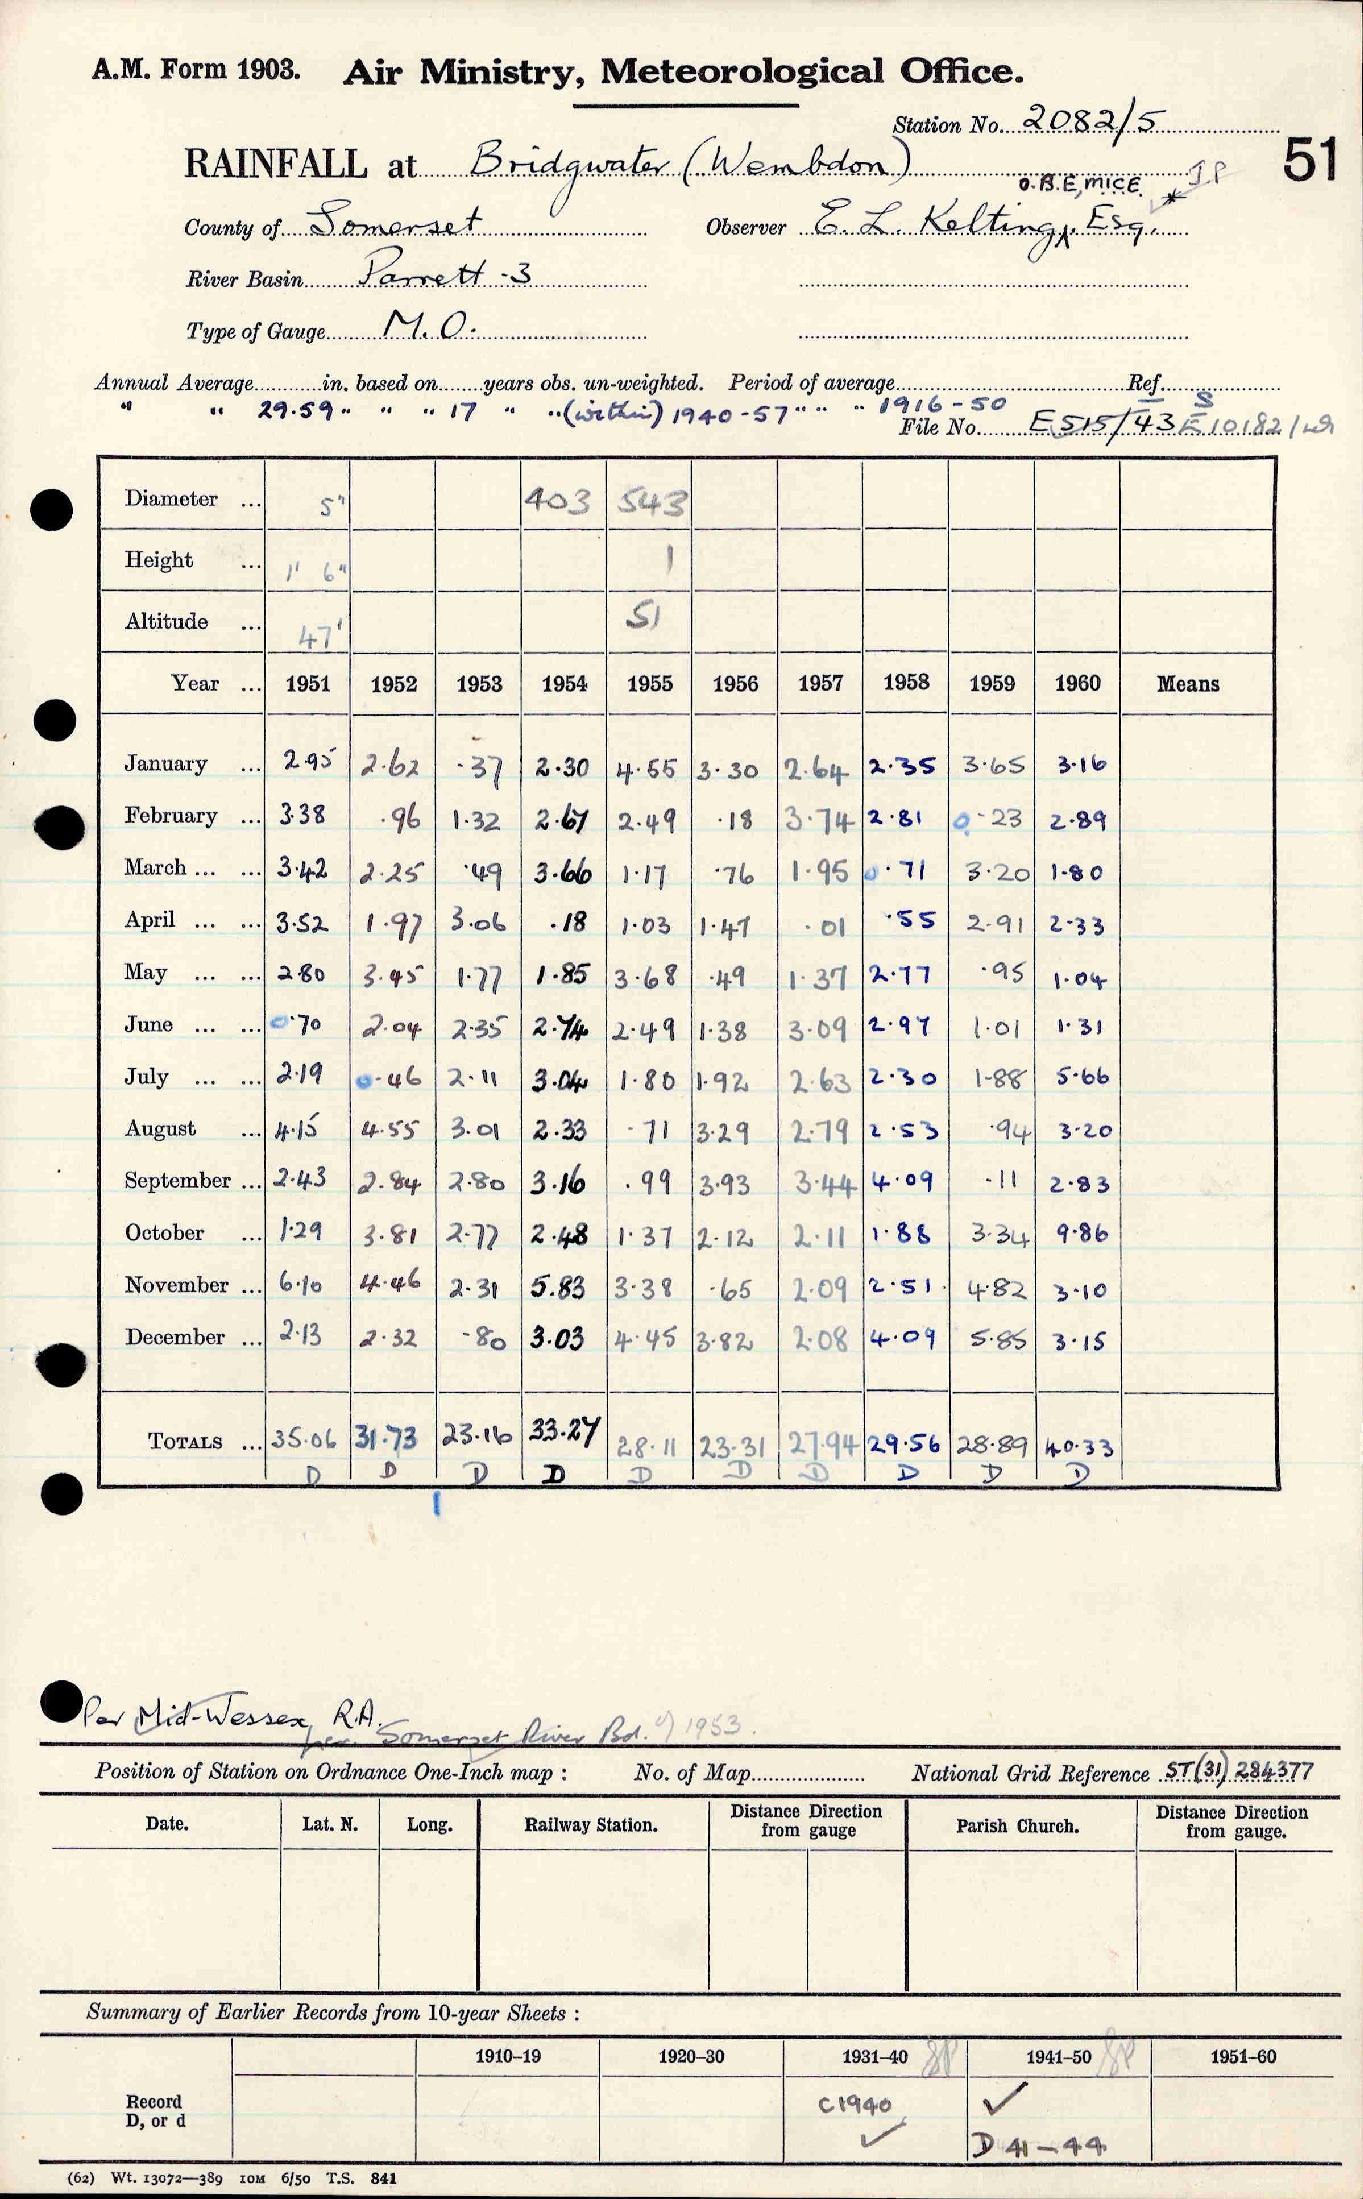 A.M. Form 1903. Air Ministry, Meteorological Office.
Station No. 2082/5
51
RAINFALL at Bridgwater (Wembdon)
O.B.E, MICE * JP
County of Somerset Observer E. L. Kelting, Esq.
River Basin Parrett - 3
Type of Gauge M.O.
Annual Average in. based on years obs. un-weighted. Period of average Ref.
" " 29.59 " " " 17 " " (within) 1940-57 " " " 1916-50 S
File No. E 515/43 E 10182/49
Diameter ... 5" 403 543
Height ... 1' 6" 1
Altitude ... 47' 51
Year ... 1951 1952 1953 1954 1955 1956 1957 1958 1959 1960 Means
January ... 2.95 2.62 .37 2.30 4.55 3.30 2.64 2.35 3.65 3.16
February ... 3.38 .96 1.32 2.67 2.49 .18 3.74 2.81 0.23 2.89
March ... ... 3.42 2.25 .49 3.66 1.17 .76 1.95 0.71 3.20 1.80
April ... ... 3.52 1.97 3.06 .18 1.03 1.47 .01 .55 2.91 2.33
May ... ... 2.80 3.45 1.77 1.85 3.68 .49 1.37 2.77 .95 1.04
June ... ... 0.70 2.04 2.35 2.74 2.49 1.38 3.09 2.97 1.01 1.31
July ... ... 2.19 0.46 2.11 3.04 1.80 1.92 2.63 2.30 1.88 5.66
August ... 4.15 4.55 3.01 2.33 .71 3.29 2.79 2.53 .94 3.20
September ... 2.43 2.84 2.80 3.16 .99 3.93 3.44 4.09 .11 2.83
October ... 1.29 3.81 2.77 2.48 1.37 2.12 2.11 1.88 3.34 9.86
November ... 6.10 4.46 2.31 5.83 3.38 .65 2.09 2.51 4.82 3.10
December ... 2.13 2.32 .80 3.03 4.45 3.82 2.08 4.09 5.85 3.15
TOTALS ... 35.06 31.73 23.16 33.27 28.11 23.31 27.94 29.56 28.89 40.33
D D D D D D D D D D
Per Mid-Wessex R.A.
per Somerset River Bd. 1953.
Position of Station on Ordnance One-Inch map : No. of Map National Grid Reference ST(31) 284377
Date. Lat. N. Long. Railway Station. Distance from gauge Direction Parish Church. Distance from gauge. Direction
Summary of Earlier Records from 10-year Sheets :
1910–19 1920–30 1931–40 1941–50 1951–60
Record C1940 ✓
D, or d ✓ D 41-44
(62) Wt. 13072—389 10M 6/50 T.S. 841